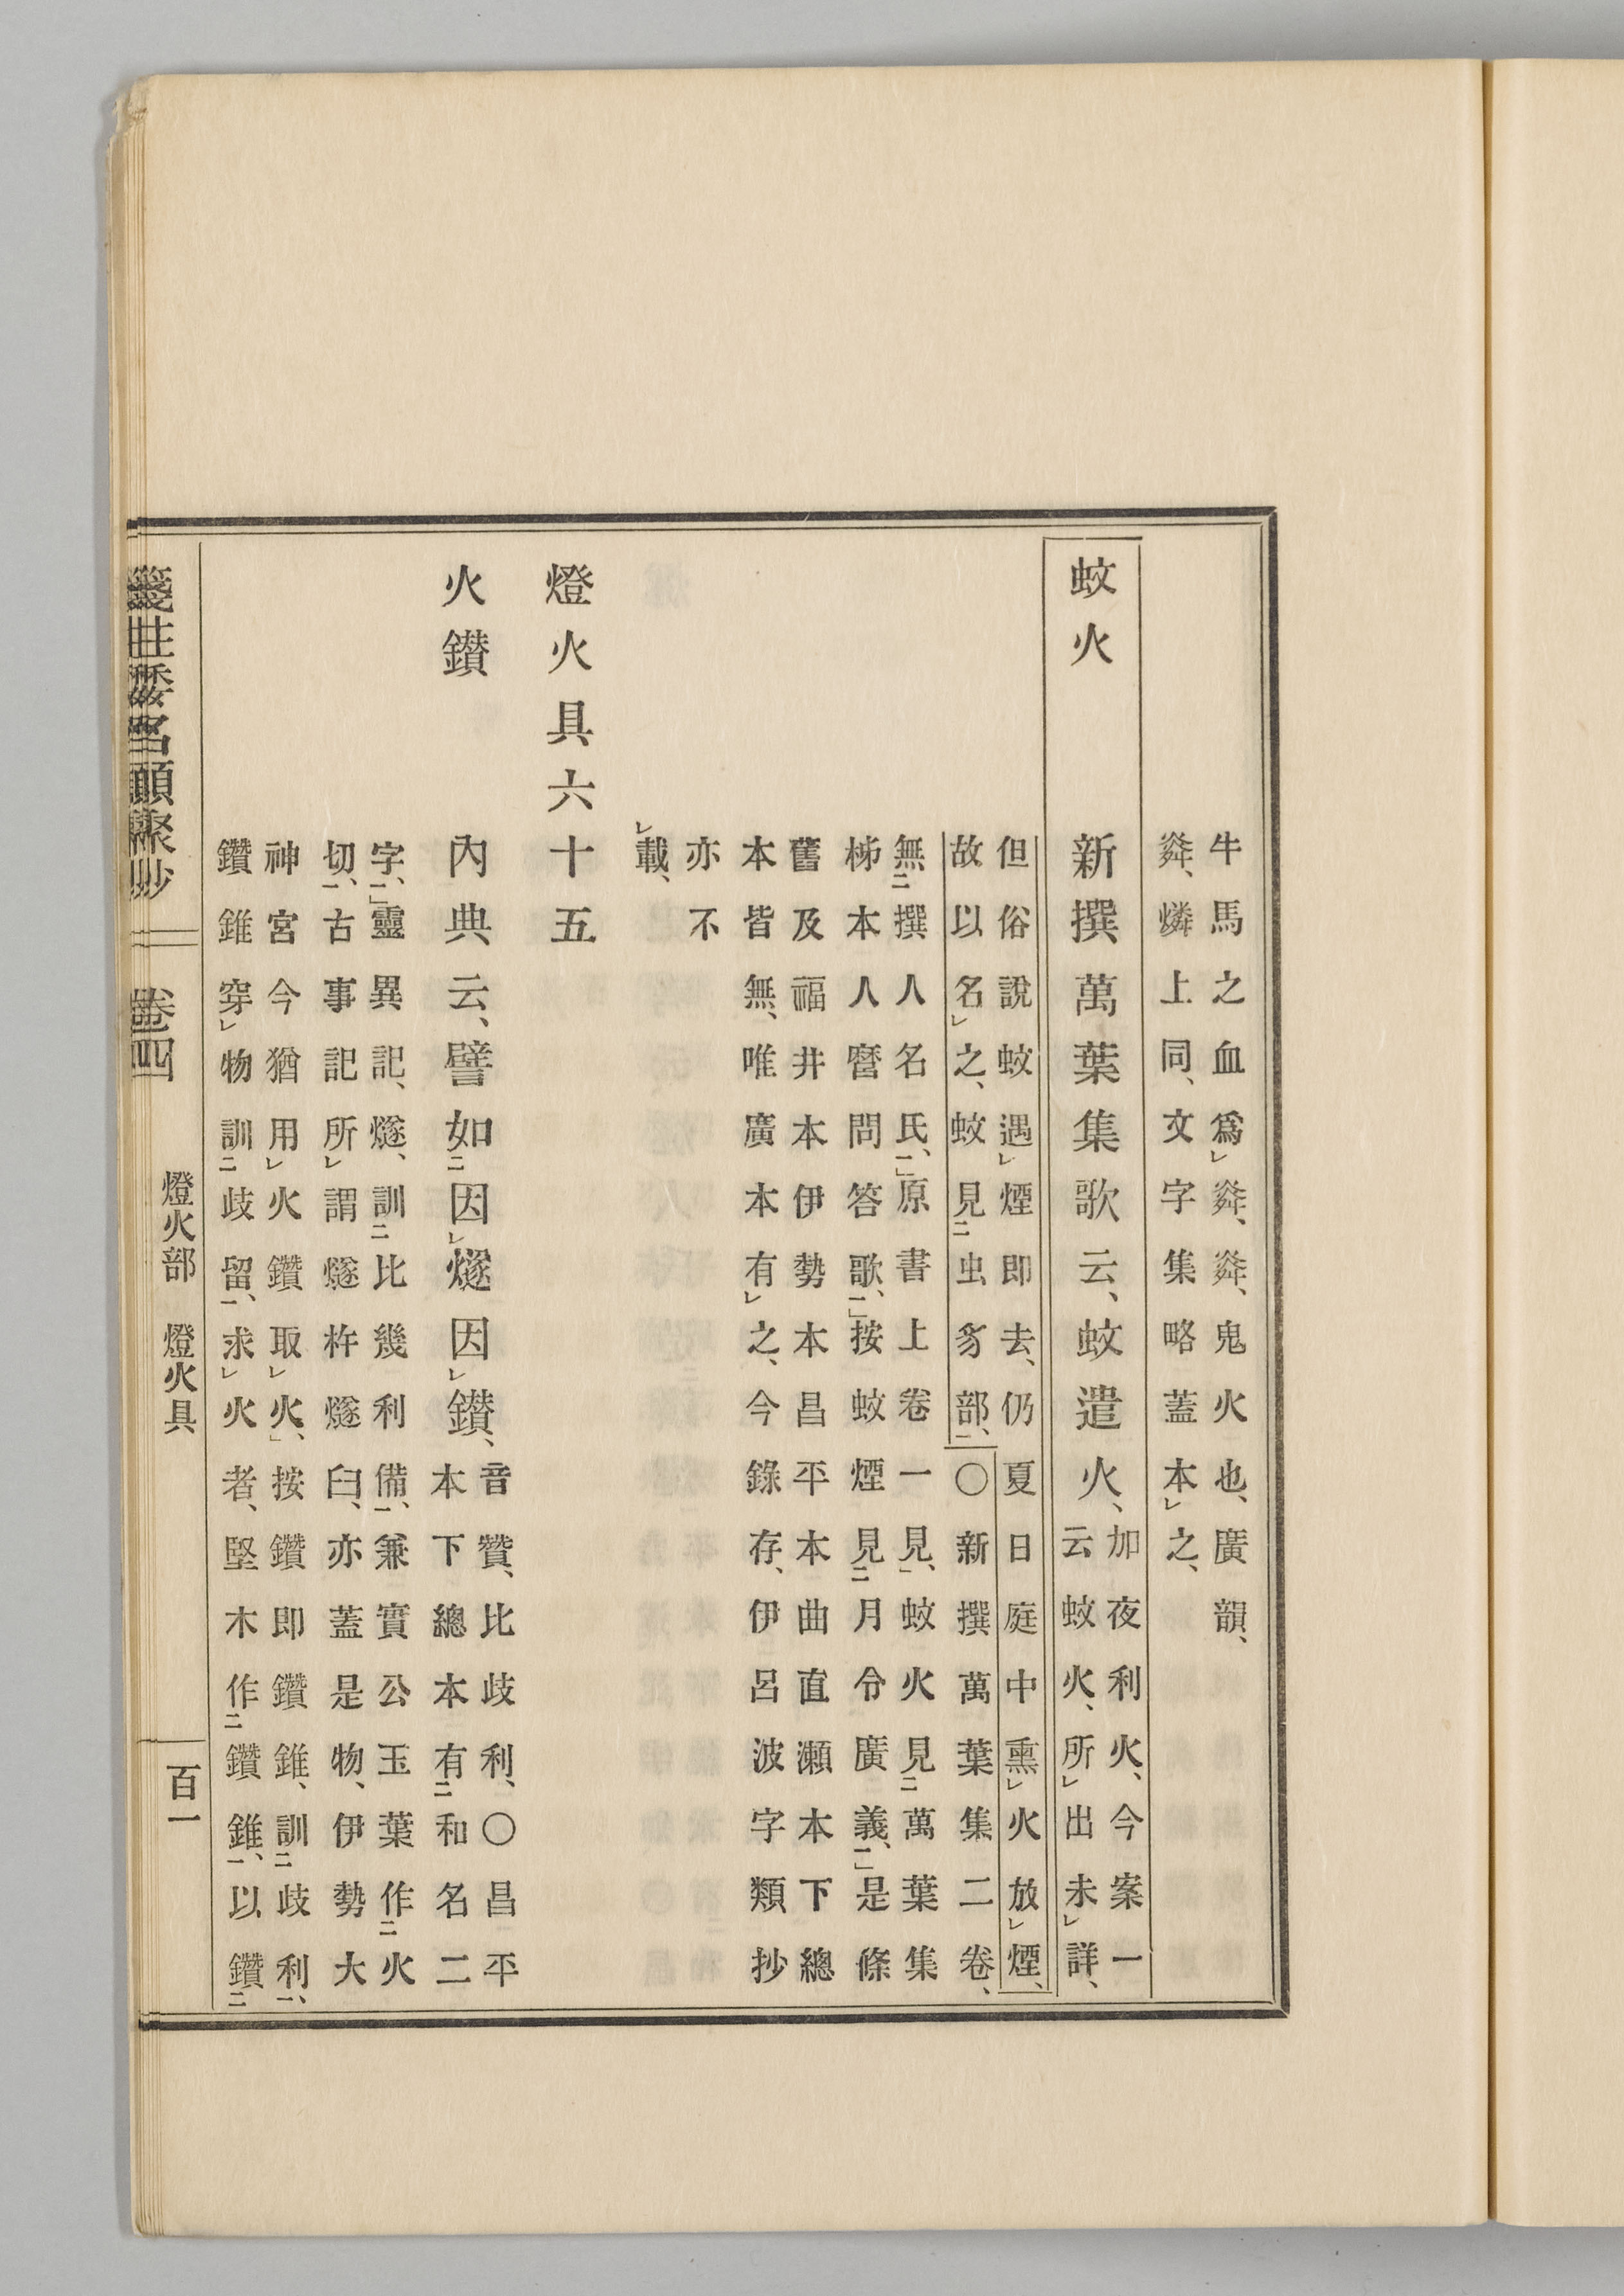 牛馬之血爲㆑粦、粦、鬼火也、廣韻、
粦、燐上同、文字集略蓋本㆑之、
蚊火　新撰萬葉集歌云、蚊遣火、加夜利火、今案一
云蚊火、所㆑出未㆑詳、
但俗說蚊遇㆑煙即去、仍夏日庭中熏㆑火放㆑煙、
故以名㆑之、蚊見㆓虫豸部㆒、〇新撰萬葉集二卷、
無㆓撰人名氏㆒、」原書上卷一見、」蚊火見㆓萬葉集
柹本人麿問答歌㆒、」按蚊煙見㆓月令廣義㆒、」是條
舊及福井本伊勢本昌平本曲直瀨本下總
本皆無、唯廣本有㆑之、今錄存、伊呂波字類抄
亦不
㆑載、
燈火具六十五
火鑚　內典云、譬如㆓因㆑燧因㆑鑚、音贊、比歧利、〇昌平
本下總本有㆓和名二
字㆒、」靈異記、燧、訓㆓比幾利備㆒、兼實公玉葉作㆓火
切㆒、古事記所㆑謂燧杵燧臼、亦蓋是物、伊勢大
神宮今猶用㆑火鑽取㆑火、」按鑽即鑽錐、訓㆓歧利㆒、
鑽錐穿㆑物訓㆓歧留㆒、求㆑火者、堅木作㆓鑽錐㆒、以鑽㆓
箋註倭名類聚抄　卷四　燈火部　燈火具　百一